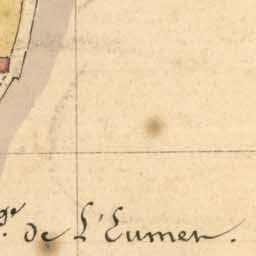 de L'Eumer.